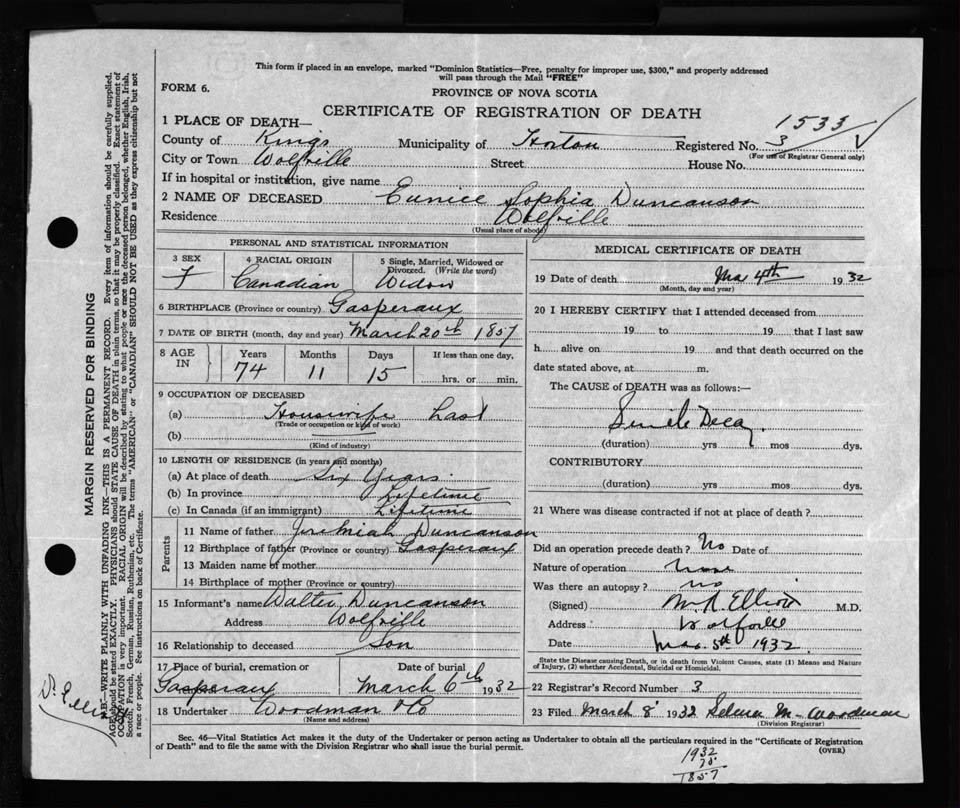 This form if placed in an envelope, marked "Dominion Statistics—Free, penalty for improper use, $300," and properly addressed
will pass through the Mail "FREE"
FORM 6.
PROVINCE OF NOVA SCOTIA
CERTIFICATE OF REGISTRATION OF DEATH
1533
1 PLACE OF DEATH—
County of Kings Municipality of Horton Registered No. 3
(For use of Registrar General only)
City or Town Wolfville Street House No.
If in hospital or institution, give name
2 NAME OF DECEASED Eunice Sophia Duncanson
Residence Wolfville
(Usual place of abode)
PERSONAL AND STATISTICAL INFORMATION
3 SEX 4 RACIAL ORIGIN 5 Single, Married, Widowed or
Divorced. (Write the word)
F Canadian Widow
6 BIRTHPLACE (Province or country) Gasperaux
7 DATE OF BIRTH (month, day and year) March 20th 1857
8 AGE IN Years Months Days If less than one day,
74 11 15 hrs. or min.
9 OCCUPATION OF DECEASED
(a) Housewife Last
(Trade or occupation or kind of work)
(b)
(Kind of industry)
10 LENGTH OF RESIDENCE (in years and months)
(a) At place of death Six Years
(b) In province Lifetime
(c) In Canada (if an immigrant) Lifetime
Parents
11 Name of father Jeremiah Duncanson
12 Birthplace of father (Province or country) Gasperaux
13 Maiden name of mother
14 Birthplace of mother (Province or country)
15 Informant's name Walter Duncanson
Address Wolfville
16 Relationship to deceased Son
17 Place of burial, cremation or Date of burial
Gasperaux March 6th 1932
18 Undertaker Woodman & Co
(Name and address)
MEDICAL CERTIFICATE OF DEATH
19 Date of death Mar 4th 1932
(Month, day and year)
20 I HEREBY CERTIFY that I attended deceased from
19 to 19 that I last saw
h alive on 19 and that death occurred on the
date stated above, at m.
The CAUSE of DEATH was as follows:—
Senile Decay
(duration) yrs mos dys.
CONTRIBUTORY
(duration) yrs mos dys.
21 Where was disease contracted if not at place of death?
Did an operation precede death? No Date of
Nature of operation None
Was there an autopsy? no
(Signed) M.R. Elliott M.D.
Address Wolfville
Date Mar. 5th 1932
State the Disease causing Death, or in death from Violent Causes, state (1) Means and Nature
of Injury, (2) whether Accidental, Suicidal or Homicidal.
22 Registrar's Record Number 3
23 Filed March 8 1932 Selena M. Woodman
(Division Registrar)
Sec. 46—Vital Statistics Act makes it the duty of the Undertaker or person acting as Undertaker to obtain all the particulars required in the "Certificate of Registration
of Death" and to file the same with the Division Registrar who shall issue the burial permit.
(OVER)
1932
75
1857
MARGIN RESERVED FOR BINDING
N.B.—WRITE PLAINLY WITH UNFADING INK—THIS IS A PERMANENT RECORD. Every item of information should be carefully supplied.
AGE should be stated EXACTLY. PHYSICIANS should STATE CAUSE OF DEATH in plain terms, so that it may be properly classified. Exact statement of
OCCUPATION is very important. RACIAL ORIGIN will be described by stating to what people or race the deceased person belonged, whether English, Irish,
Scotch, French, German, Russian, Ruthenian, etc. The terms "AMERICAN" or "CANADIAN" SHOULD NOT BE USED as they express citizenship but not
a race or people. See instructions on back of Certificate.